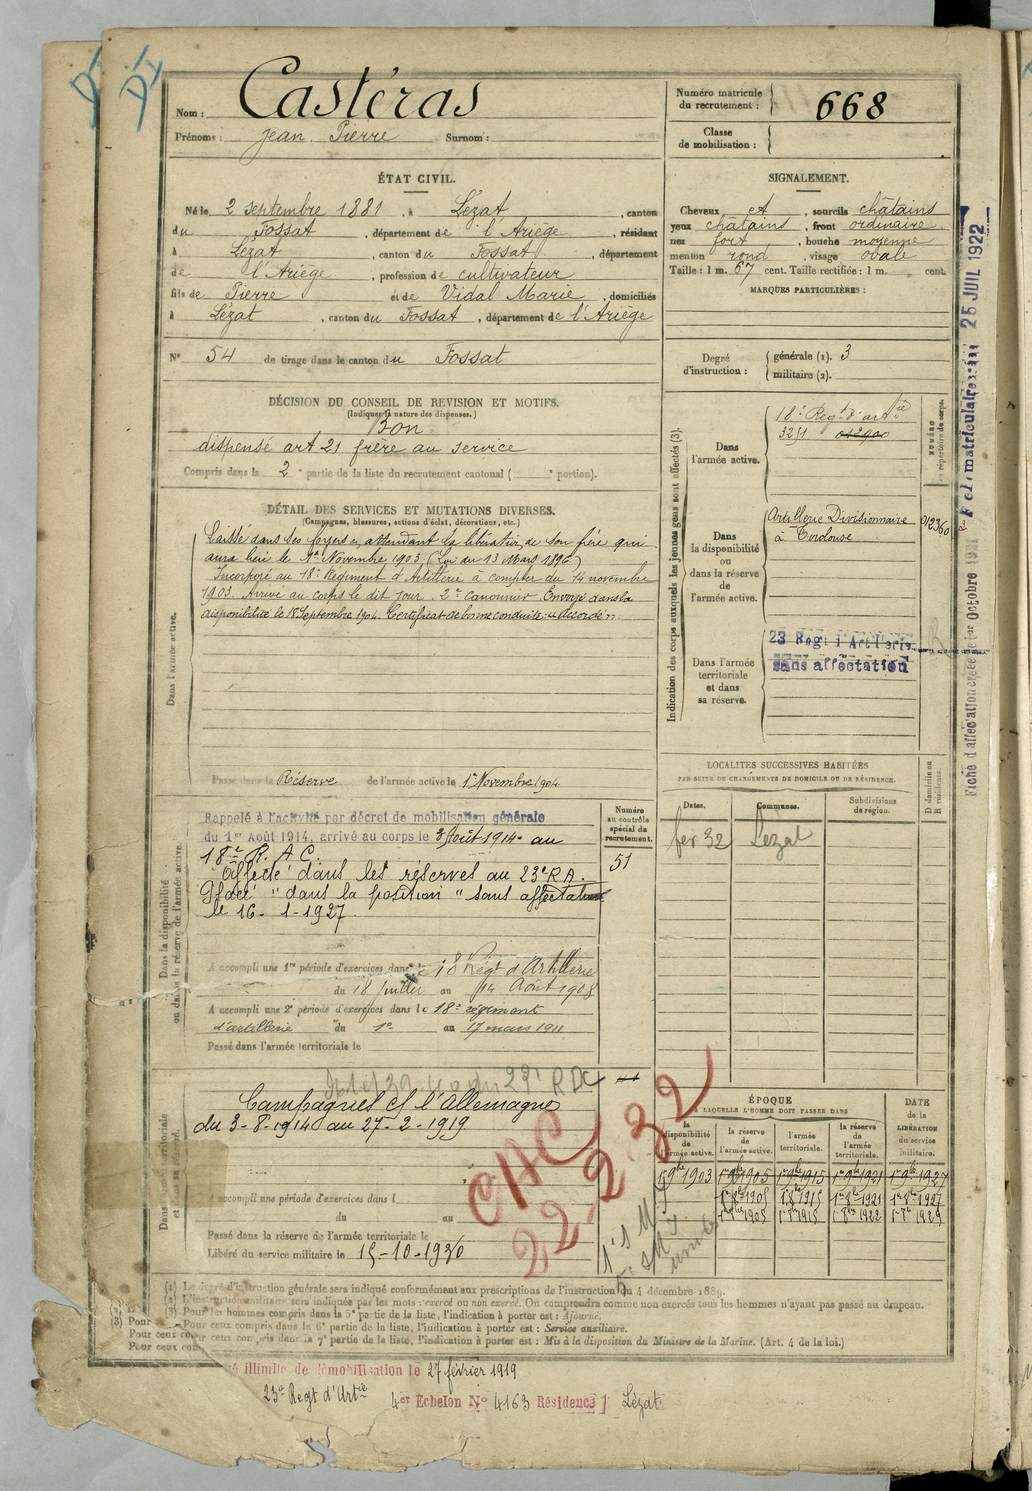 DI
DI
Nom : Castéras
Prénoms : Jean Pierre Surnom :
Numéro matricule du recrutement : 668
Classe de mobilisation :
ÉTAT CIVIL.
Né le 2 septembre 1881, à Lézat, canton
du Fossat, département de l'Ariège, résidant
à Lézat, canton du Fossat, département
de l'Ariège, profession de cultivateur
fils de Pierre et de Vidal Marie, domiciliés
à Lézat, canton du Fossat, département de l'Ariège
N° 54 de tirage dans le canton du Fossat
SIGNALEMENT.
Cheveux et, sourcils châtains
yeux châtains, front ordinaire
nez fort, bouche moyenne
menton rond, visage ovale
Taille : 1 m. 67 cent. Taille rectifiée : 1 m. cent.
MARQUES PARTICULIÈRES :
Degré d'instruction : générale (1). 3
militaire (2).
DÉCISION DU CONSEIL DE REVISION ET MOTIFS.
(Indiquer la nature des dispenses.)
Bon
dispensé art 21 frère au service
Compris dans la 2e partie de la liste du recrutement cantonal ( e portion).
DÉTAIL DES SERVICES ET MUTATIONS DIVERSES.
(Campagnes, blessures, actions d'éclat, décorations, etc.)
Dans l'armée active.
Laissé dans ses foyers en attendant la libération de son frère qui
aura lieu le 1er Novembre 1903 (Loi du 13 Mars 1896)
Incorporé au 18e Régiment d'Artillerie à compter du 14 novembre
1903. Arrivé au corps le dit jour. 2e canonnier. Envoyé dans la
disponibilité le 18 Septembre 1904. Certificat de bonne conduite "accordé".
Passé dans la Réserve de l'armée active le 1er Novembre 1904.
Indication des corps auxquels les jeunes gens sont affectés (3).
Dans l'armée active.
18e Regt d'artie
3251
NUMÉRO
au répertoire du corps.
Dans la disponibilité ou dans la réserve de l'armée active.
Artillerie Divisionnaire
à Toulouse
01236
Dans l'armée territoriale et dans sa réserve.
23 Regt d'Artillerie
sans affectation
Fiche d'affectation créée le 1er Octobre 1921
Fet matriculaire 25 JUIL 1922
LOCALITÉS SUCCESSIVES HABITÉES
PAR SUITE DE CHANGEMENTS DE DOMICILE OU DE RÉSIDENCE.
Dates. Communes. Subdivisions de région. D. domicile ou R. résidence.
fev 32 Lézat
Dans la disponibilité ou dans la réserve de l'armée active.
Numéro au contrôle spécial du recrutement.
51
Rappelé à l'activité par décret de mobilisation générale
du 1er Août 1914, arrivé au corps le 3 Août 1914 au
18e R.A.C.
Affecté dans les réserves au 23e R.A.
Placé "dans la position" sans affectation
le 16-1-1927
A accompli une 1re période d'exercices dans le 18 Régt d'Artillerie
du 18 Juillet au 14 Août 1908
A accompli une 2e période d'exercices dans le 18e régiment
d'artillerie du 1er au 17 mars 1911
Passé dans l'armée territoriale le
Campagnes c/ l'Allemagne
du 3-8-1914 au 27-2-1919
CAC
22-2-32
A accompli une période d'exercices dans l
du au
Passé dans la réserve de l'armée territoriale le
Libéré du service militaire le 15-10-1930
ÉPOQUE
À LAQUELLE L'HOMME DOIT PASSER DANS
la disponibilité de l'armée active. la réserve de l'armée active. l'armée territoriale. la réserve de l'armée territoriale.
DATE de la LIBÉRATION du service militaire.
1er 9bre 1903 1er 9bre 1905 1er 9bre 1915 1er 9bre 1921 1er 9bre 1927
(1) Le degré d'instruction générale sera indiqué conformément aux prescriptions de l'instruction du 4 décembre 1889.
(2) L'instruction militaire sera indiquée par les mots : exercé ou non exercé. On comprendra comme non exercés tous les hommes n'ayant pas passé au drapeau.
(3) Pour les hommes compris dans la 5e partie de la liste, l'indication à porter est : Ajourné.
Pour ceux compris dans la 6e partie de la liste, l'indication à porter est : Service auxiliaire.
Pour ceux compris dans la 7e partie de la liste, l'indication à porter est : Mis à la disposition du Ministre de la Marine. (Art. 4 de la loi.)
illimité de démobilisation le 27 février 1919
23e Regt d'Artie 4er Echelon No 4163 Résidence Lézat